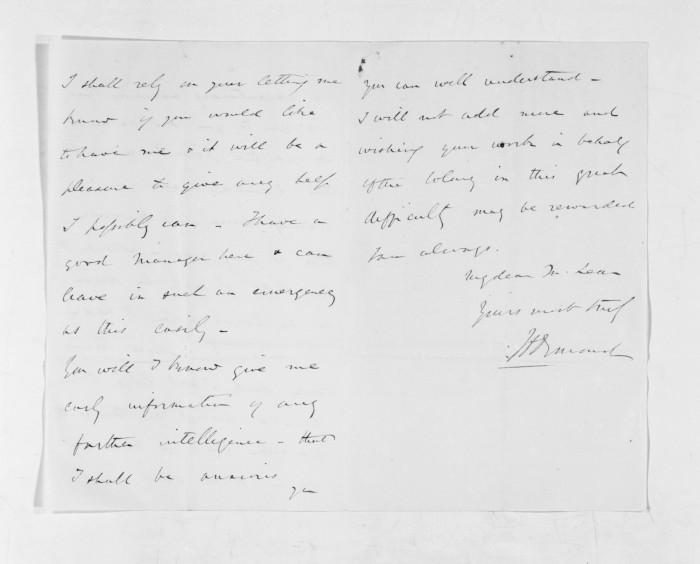 I shall rely on your letting me
know if you would like
to have me & it will be a
pleasure to give any help
I possibly can – I have a
good Manager here & can
leave in such an emergency
as this easily –
You will I know give me
early information of any
further intelligence – that
I shall be anxious
you
you can well understand –
I will not add more and
wishing your work in behalf
of the Colony in this great
difficulty may be rewarded
I am always.
My dear McLean
Yours most truly